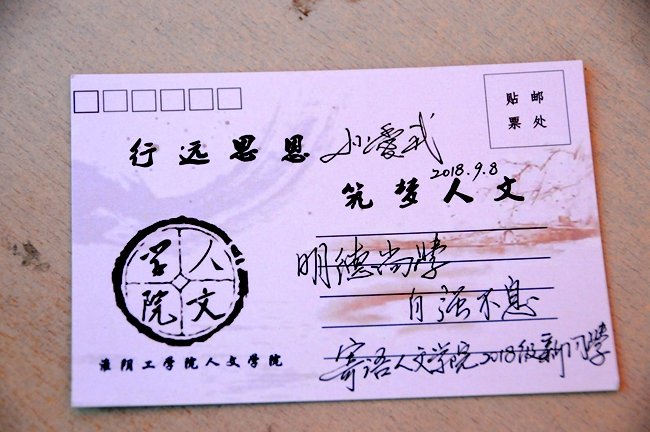 贴 邮
票 处
行远思恩
2018.9.8
筑梦人文
学人
院文
明德尚学
自强不息
淮阴工学院人文学院
寄语人文学院2018级新同学